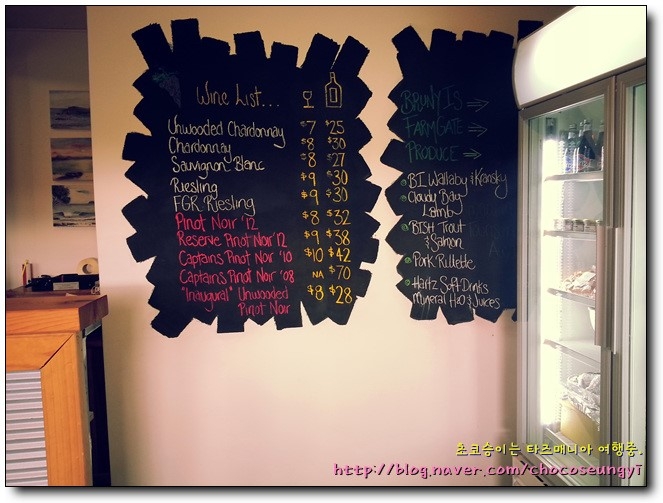 Wine List...
Unwooded Chardonnay $7 $25
Chardonnay $8 $30
Sauvignon Blanc $8 $27
Riesling $9 $30
FGR Riesling $9 $30
Pinot Noir '12 $8 $32
Reserve Pinot Noir '12 $9 $38
Captains Pinot Noir '10 $10 $42
Captains Pinot Noir '08 NA $70
"Inaugural" Unwooded $8 $28
Pinot Noir
BRUNY IS →
FARMGATE →
PRODUCE →
BI Wallaby & Kransky
Cloudy Bay
Lamb
BISH Trout
& Salmon
Pork Rillette
Hartz Soft Drinks
Mineral H2O & Juices
초코승이는 타즈매니아 여행중.
http://blog.naver.com/chocoseungyi